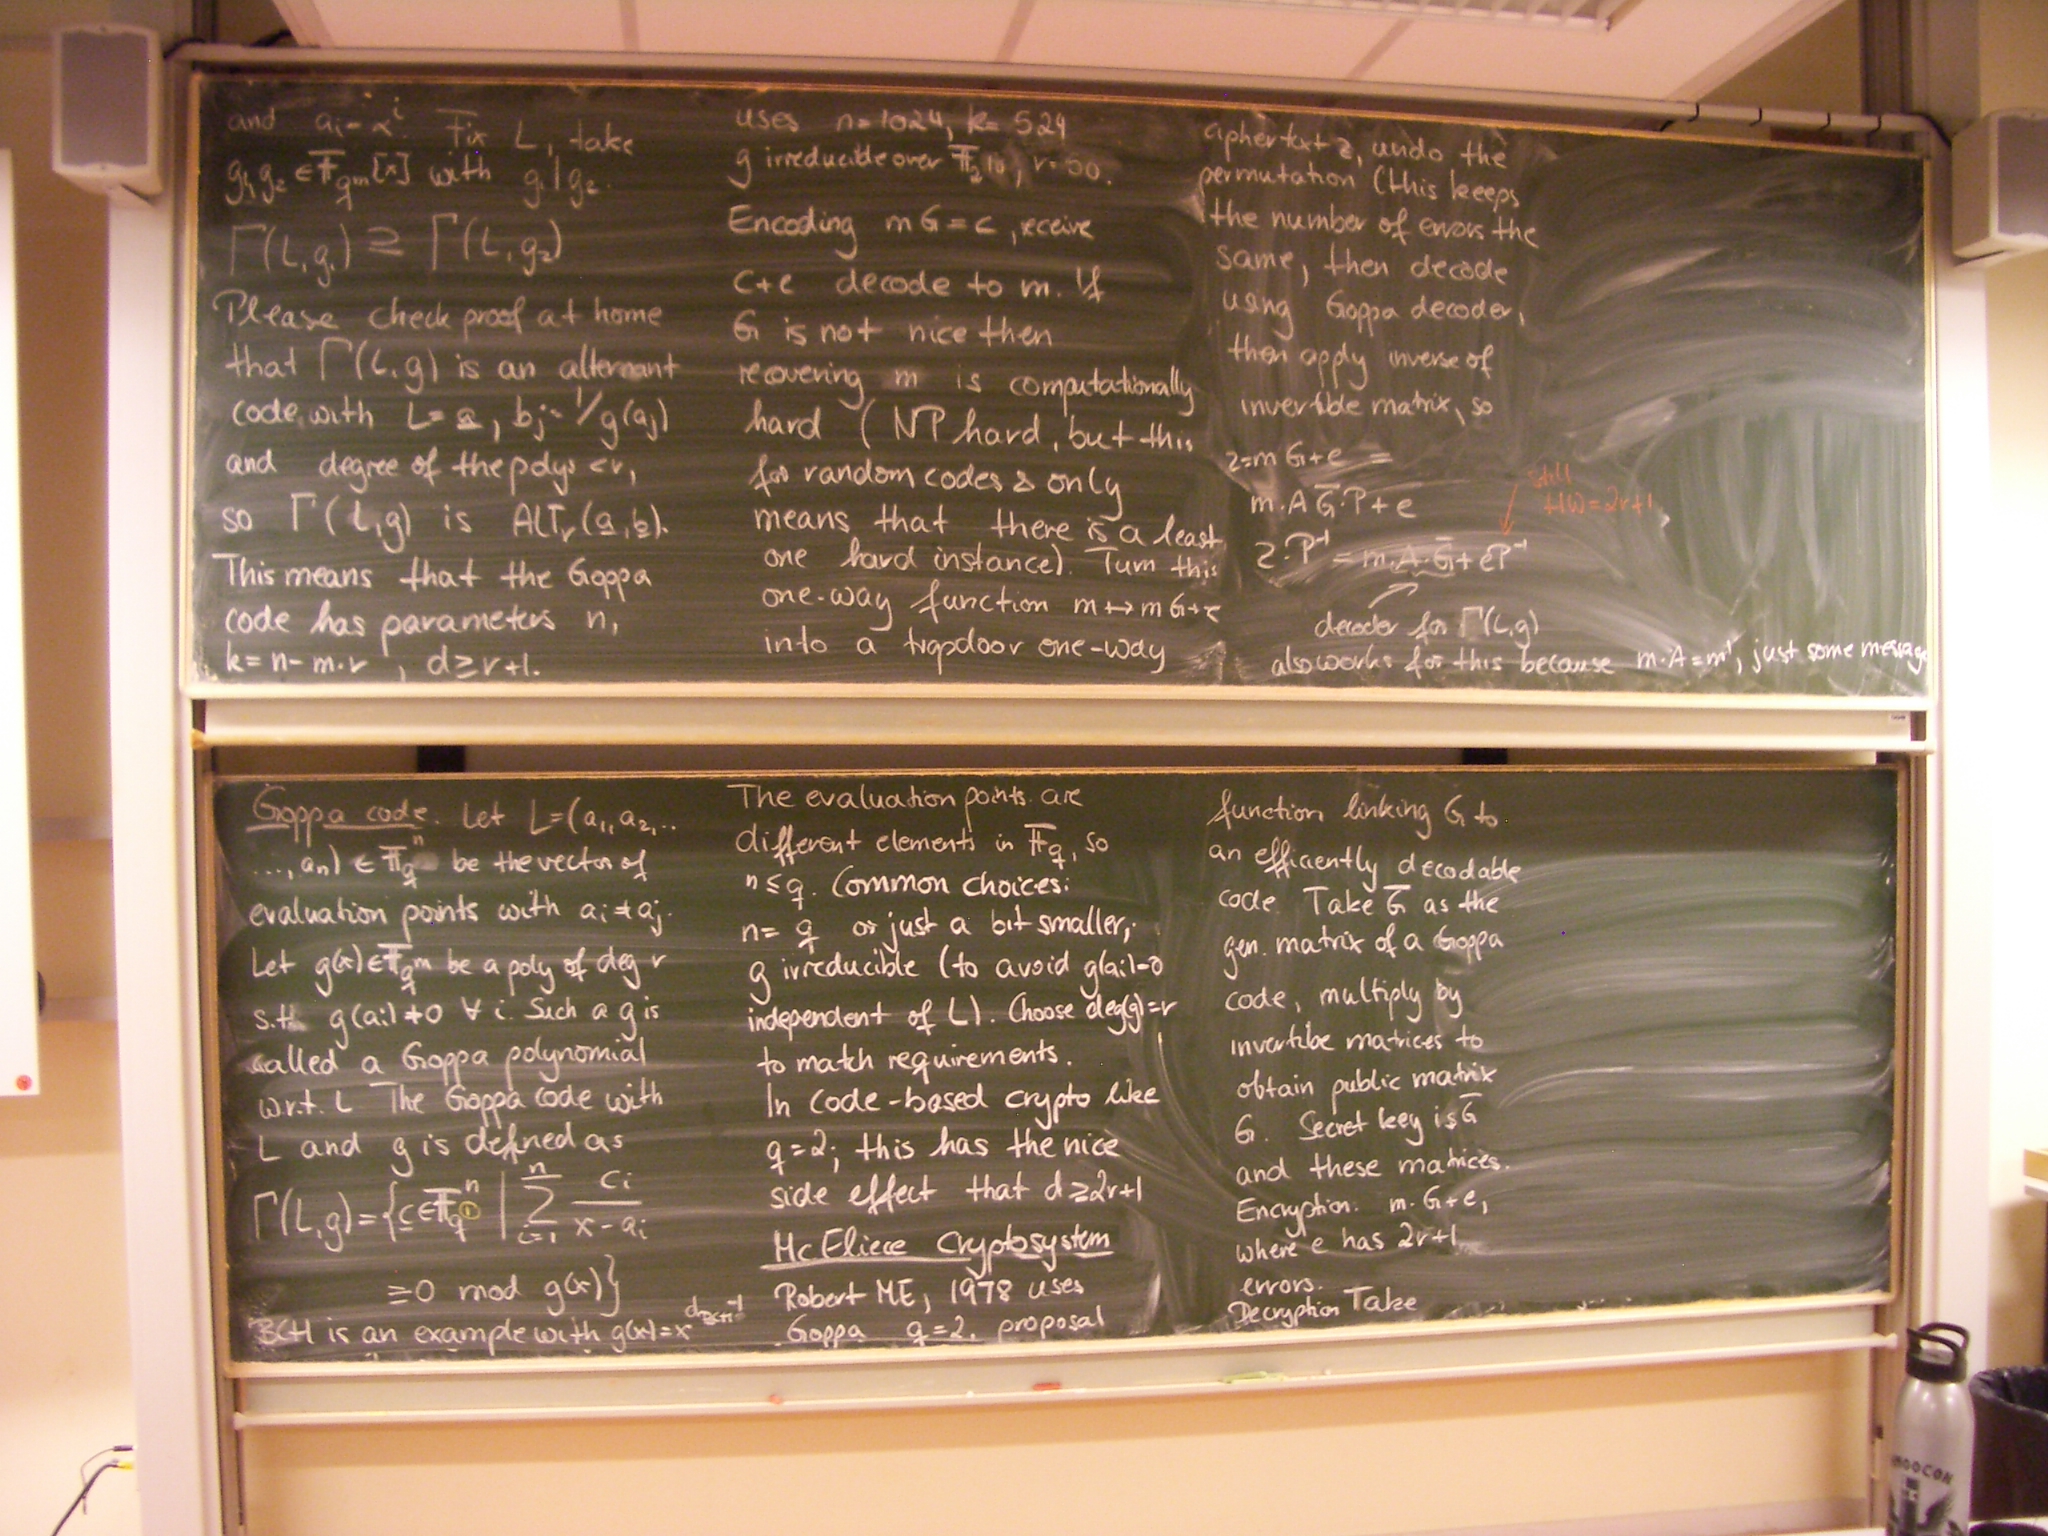 and ai = α^i. Fix L, take
g1, g2 ∈ F_q^m[x] with g1 | g2.
Γ(L, g1) ⊇ Γ(L, g2)
Please check proof at home
that Γ(L, g) is an alternant
code with L = a, bj = 1/g(aj)
and degree of the polys < r,
so Γ(L, g) is ALT_r(a, b).
This means that the Goppa
code has parameters n,
k = n - m·r , d ≥ r+1.
uses n = 1024, k = 524
g irreducible over F_2^10, r = 50.
Encoding mG = c, receive
c+e decode to m. If
G is not nice then
recovering m is computationally
hard (NP hard, but this
for random codes & only
means that there is a least
one hard instance). Turn this
one-way function m ↦ mG+e
into a trapdoor one-way
ciphertext z, undo the
permutation (this keeps
the number of errors the
same, then decode
using Goppa decoder,
then apply inverse of
invertible matrix, so
z = mG+e =
m·A G̅·P + e
still
HW = 2r+1
z·P^-1 = m·A·G̅ + eP^-1
decoder for Γ(L, g)
also works for this because m·A = m', just some message
Goppa code. Let L = (a1, a2, ..
..., an) ∈ F_q^n be the vector of
evaluation points with ai ≠ aj.
Let g(x) ∈ F_q^m be a poly of deg r
s.th. g(ai) ≠ 0 ∀ i. Such a g is
called a Goppa polynomial
w.r.t. L The Goppa code with
L and g is defined as
Γ(L, g) = {c ∈ F_q^n | Σ_{i=1}^n ci / (x - ai)
≡ 0 mod g(x)}
BCH is an example with g(x) = x
The evaluation points are
different elements in F_q, so
n ≤ q. Common choices:
n = q or just a bit smaller;
g irreducible (to avoid g(ai) = 0
independent of L). Choose deg(g) = r
to match requirements.
In code-based crypto like
q = 2; this has the nice
side effect that d ≥ 2r+1
McEliece Cryptosystem
Robert ME, 1978 uses
Goppa q = 2. proposal
function linking G to
an efficiently decodable
code. Take G̅ as the
gen. matrix of a Goppa
code, multiply by
invertibe matrices to
obtain public matrix
G. Secret key is G̅
and these matrices.
Encryption: m·G+e,
where e has 2r+1
errors.
Decryption Take